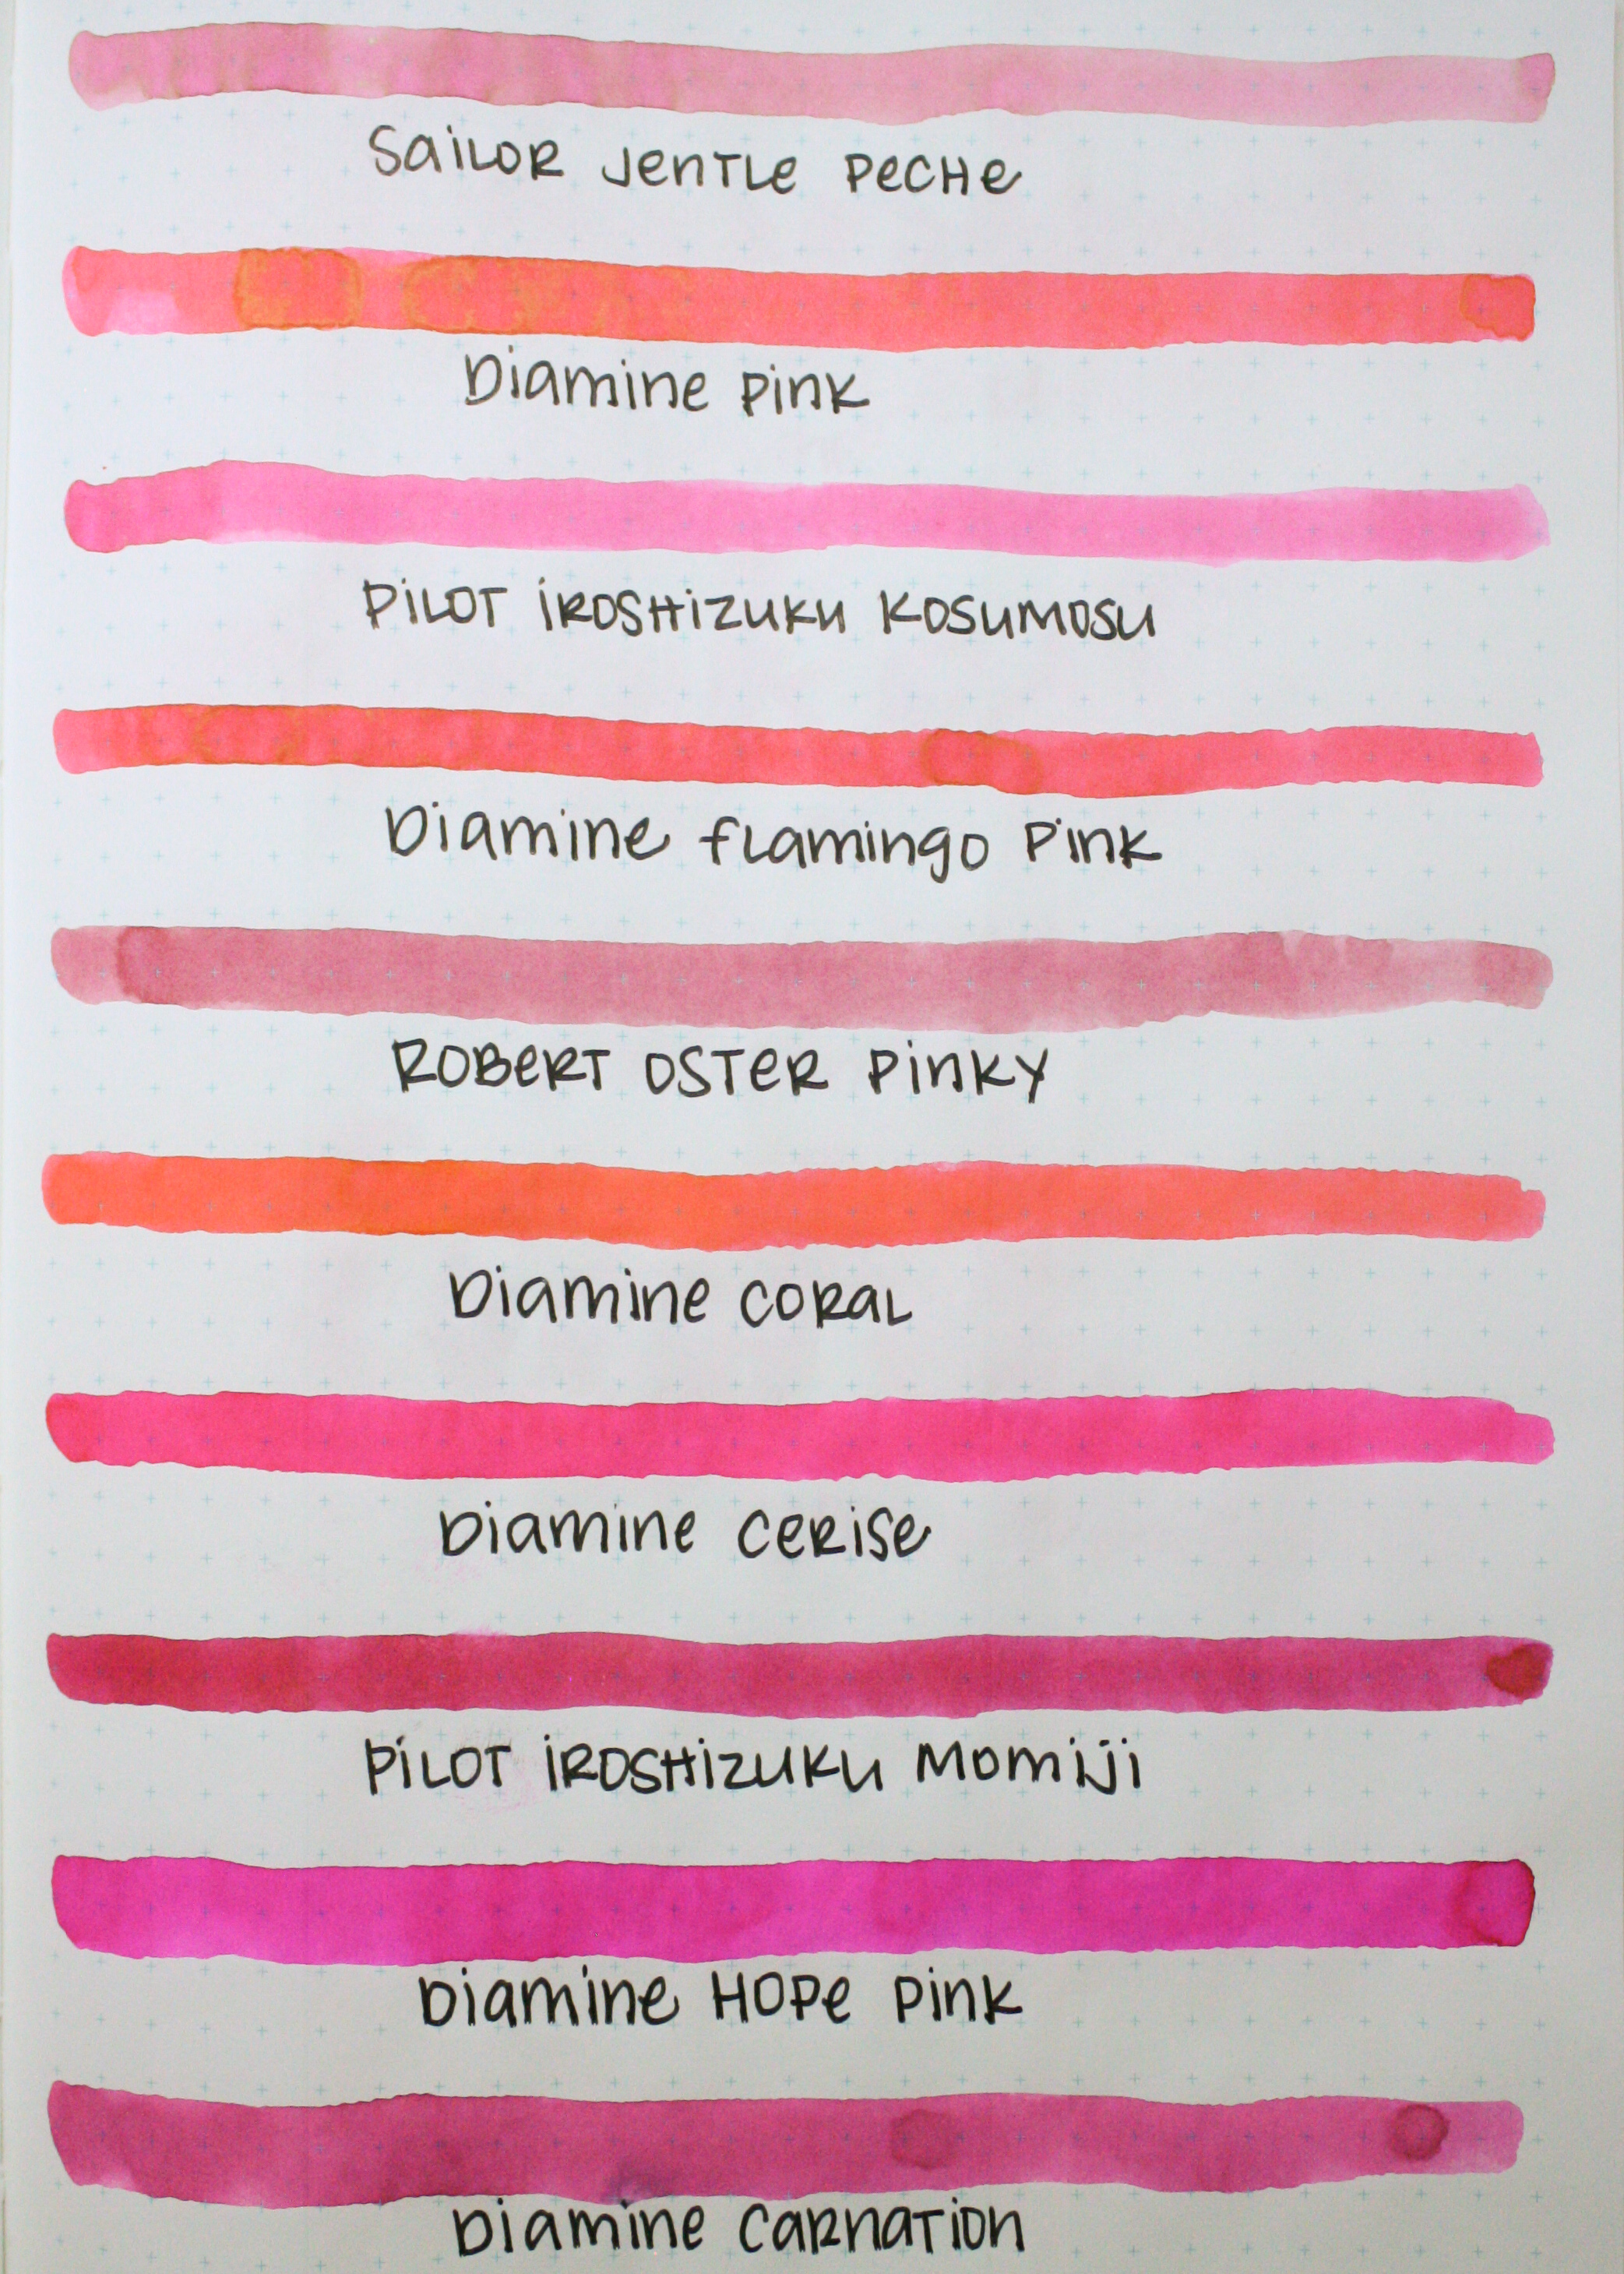 Sailor Jentle Peche
Diamine Pink
Pilot Iroshizuku Kosumosu
Diamine Flamingo Pink
Robert Oster Pinky
Diamine Coral
Diamine Cerise
Pilot Iroshizuku Momiji
Diamine Hope Pink
Diamine Carnation